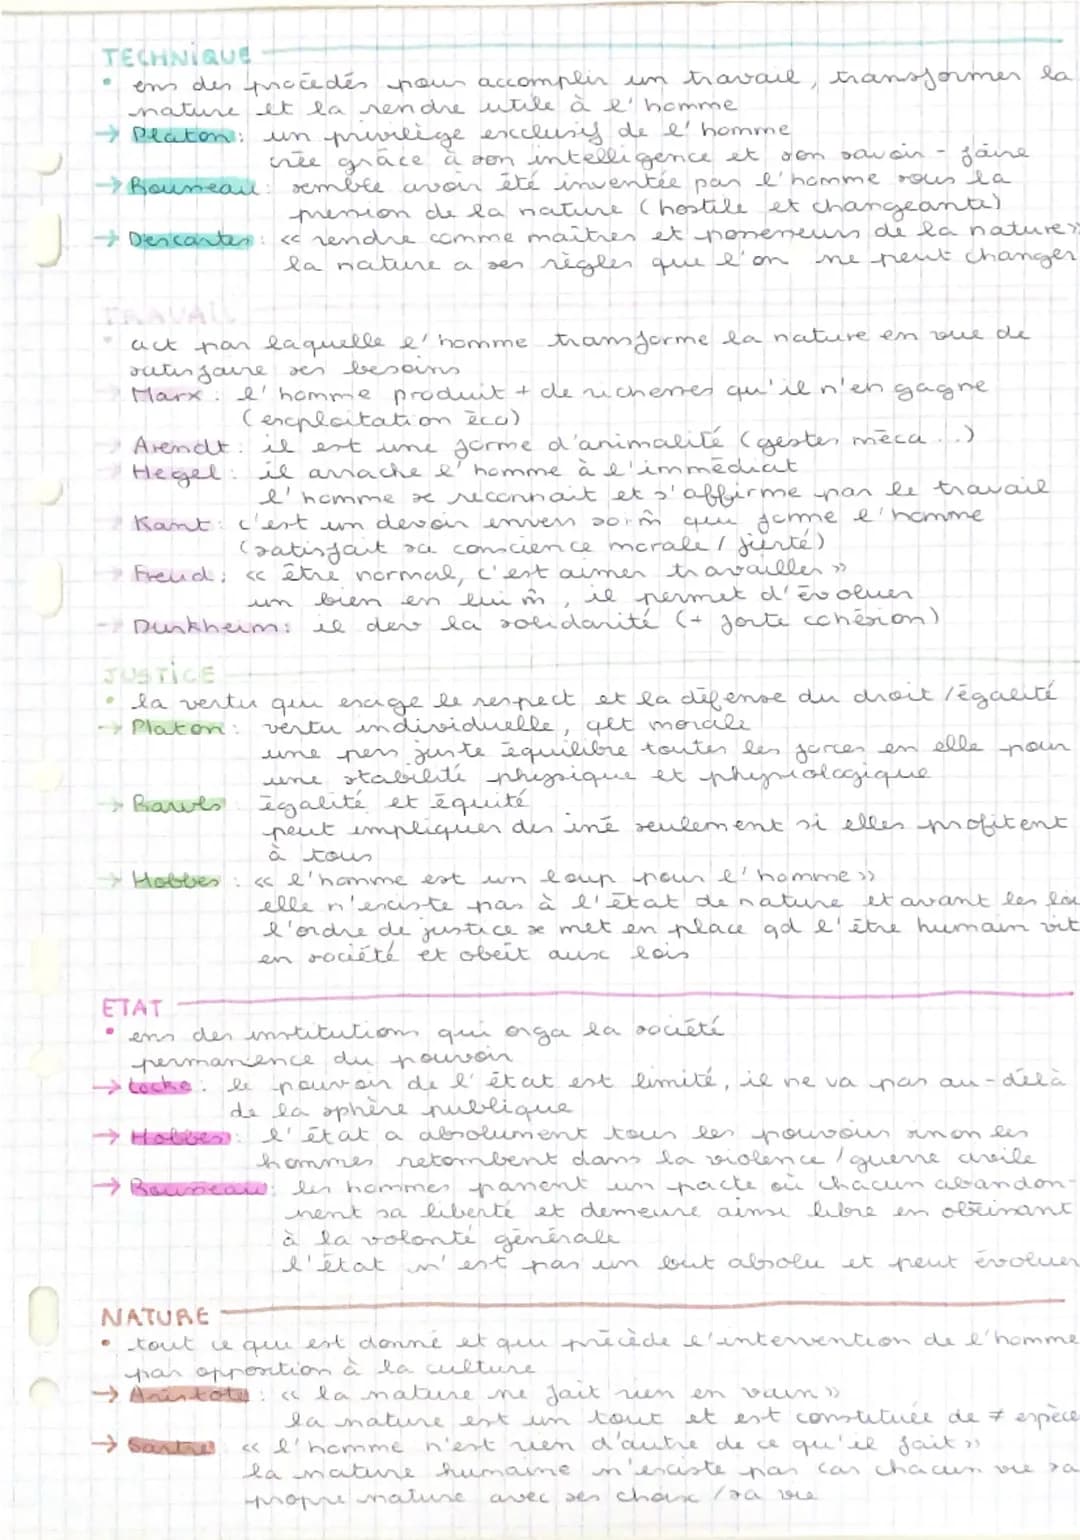 TECHNIQUE
• ens des procédés pour accomplir un travail, transformer la
nature et la rendre utile à l'homme
→ Platon : un privilège exclusif de l'homme
crée grâce à son intelligence et son savoir-faire
→ Rousseau : semble avoir été inventée par l'homme sous la
pression de la nature (hostile et changeante)
→ Descartes : << rendre comme maîtres et possesseurs de la nature >>
la nature a ses règles que l'on ne peut changer
TRAVAIL
• act par laquelle l'homme transforme la nature en vue de
satisfaire ses besoins
→ Marx : l'homme produit + de richesses qu'il n'en gagne
(exploitation éco)
→ Arendt : il est une forme d'animalité (gestes méca...)
→ Hegel : il arrache l'homme à l'immédiat
l'homme se reconnait et s'affirme par le travail
→ Kant : c'est un devoir envers soi m̂ qui forme l'homme
(satisfait sa conscience morale / fierté)
→ Freud : << être normal, c'est aimer travailler >>
un bien en lui m̂, il permet d'évoluer
→ Durkheim : il dev la solidarité (+ forte cohésion)
JUSTICE
• la vertu qui exige le respect et la défense du droit /égalité
→ Platon : vertu individuelle, qlt morale
une pers juste équilibre toutes les forces en elle pour
une stabilité physique et physiologique
→ Rawls : égalité et équité
peut impliquer des iné seulement si elles profitent
à tous
→ Hobbes : << l'homme est un loup pour l'homme >>
elle n'existe pas à l'état de nature et avant les loi
l'ordre de justice se met en place qd l'être humain vit
en société et obéit aux lois
ETAT
• ens des institutions qui orga la société
permanence du pouvoir
→ Locke : le pouvoir de l'état est limité, il ne va pas au-delà
de la sphère publique
→ Hobbes : l'état a absolument tous les pouvoirs sinon les
hommes retombent dans la violence / guerre civile
→ Rousseau : les hommes passent un pacte où chacun abandon-
nent sa liberté et demeure ainsi libre en obéissant
à la volonté générale
l'état n'est pas un but absolu et peut évoluer
NATURE
• tout ce qui est donné et qui précède l'intervention de l'homme
par opposition à la culture
→ Aristote : << la nature ne fait rien en vain >>
la nature est un tout et est constituée de ≠ espèce
→ Sartre : << l'homme n'est rien d'autre de ce qu'il fait >>
la nature humaine n'existe pas car chacun vie sa
propre nature avec ses choix / sa vie